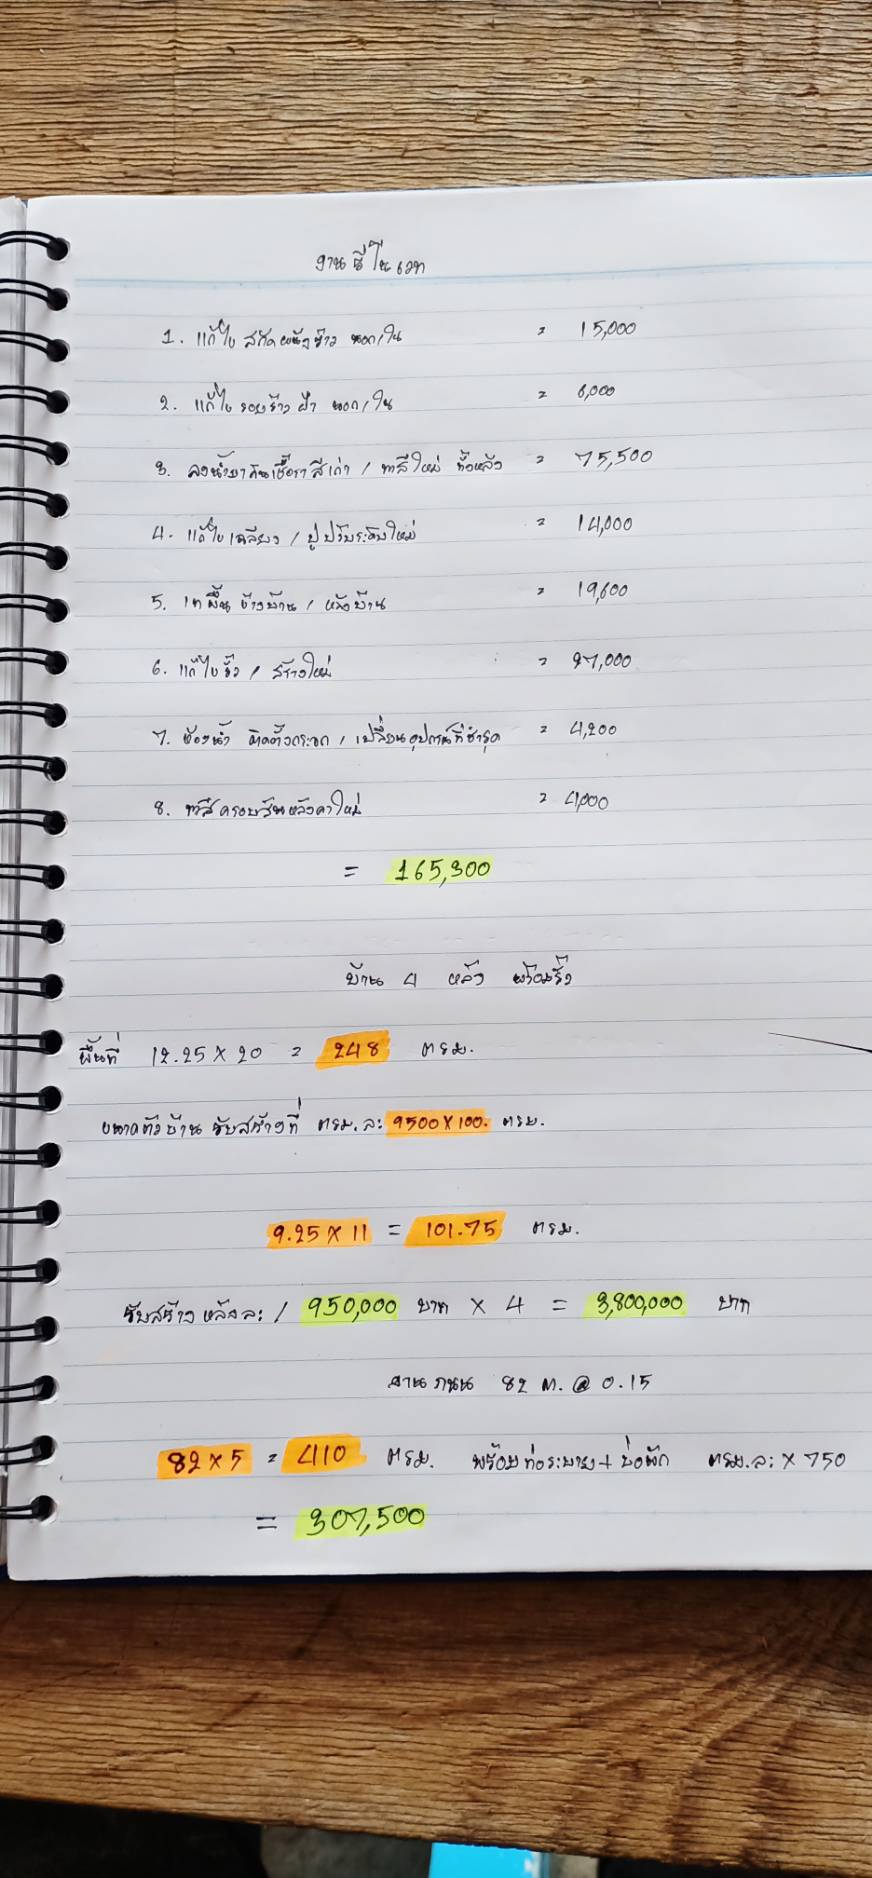 งานรีโนเวท
1. แก้ไข สกัดผนังร้าว นอก/ใน = 15,000
2. แก้ไข รอยร้าว ฝ้า นอก/ใน = 6,000
3. ลงน้ำยากันเชื้อรา สีเก่า / ทาสีใหม่ ทั้งหลัง = 75,500
4. แก้ไขเฉลียง / ปูปรับระดับใหม่ = 14,000
5. เทพื้น ข้างบ้าน / หลังบ้าน = 19,600
6. แก้ไขรั้ว / สร้างใหม่ = 27,000
7. ห้องน้ำ ติดตั้งกระจก / เปลี่ยนอุปกรณ์ที่ชำรุด = 4,200
8. ทาสีครอบสันหลังคาใหม่ = 4,000
= 165,300
บ้าน 4 หลัง พร้อมรั้ว
พื้นที่ 12.25 x 20 = 248 ตรม.
ขนาดตัวบ้าน รับสร้างที่ ตรม.ละ 9500 x 100. ตรม.
9.25 x 11 = 101.75 ตรม.
รับสร้าง หลังละ / 950,000 บาท x 4 = 3,800,000 บาท
งานถนน 82 ม. @ 0.15
82 x 5 = 410 ตรม. พร้อมท่อระบาย + บ่อพัก ตรม.ละ x 750
= 307,500